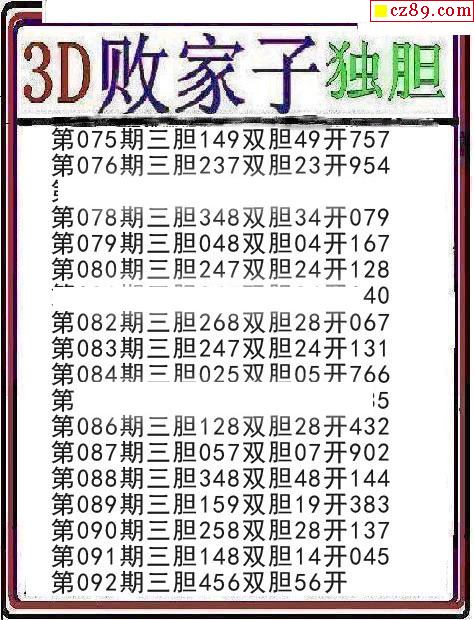 cz89.com
3D败家子独胆
第075期三胆149双胆49开757
第076期三胆237双胆23开954
第078期三胆348双胆34开079
第079期三胆048双胆04开167
第080期三胆247双胆24开128
40
第082期三胆268双胆28开067
第083期三胆247双胆24开131
第084期三胆025双胆05开766
第 35
第086期三胆128双胆28开432
第087期三胆057双胆07开902
第088期三胆348双胆48开144
第089期三胆159双胆19开383
第090期三胆258双胆28开137
第091期三胆148双胆14开045
第092期三胆456双胆56开